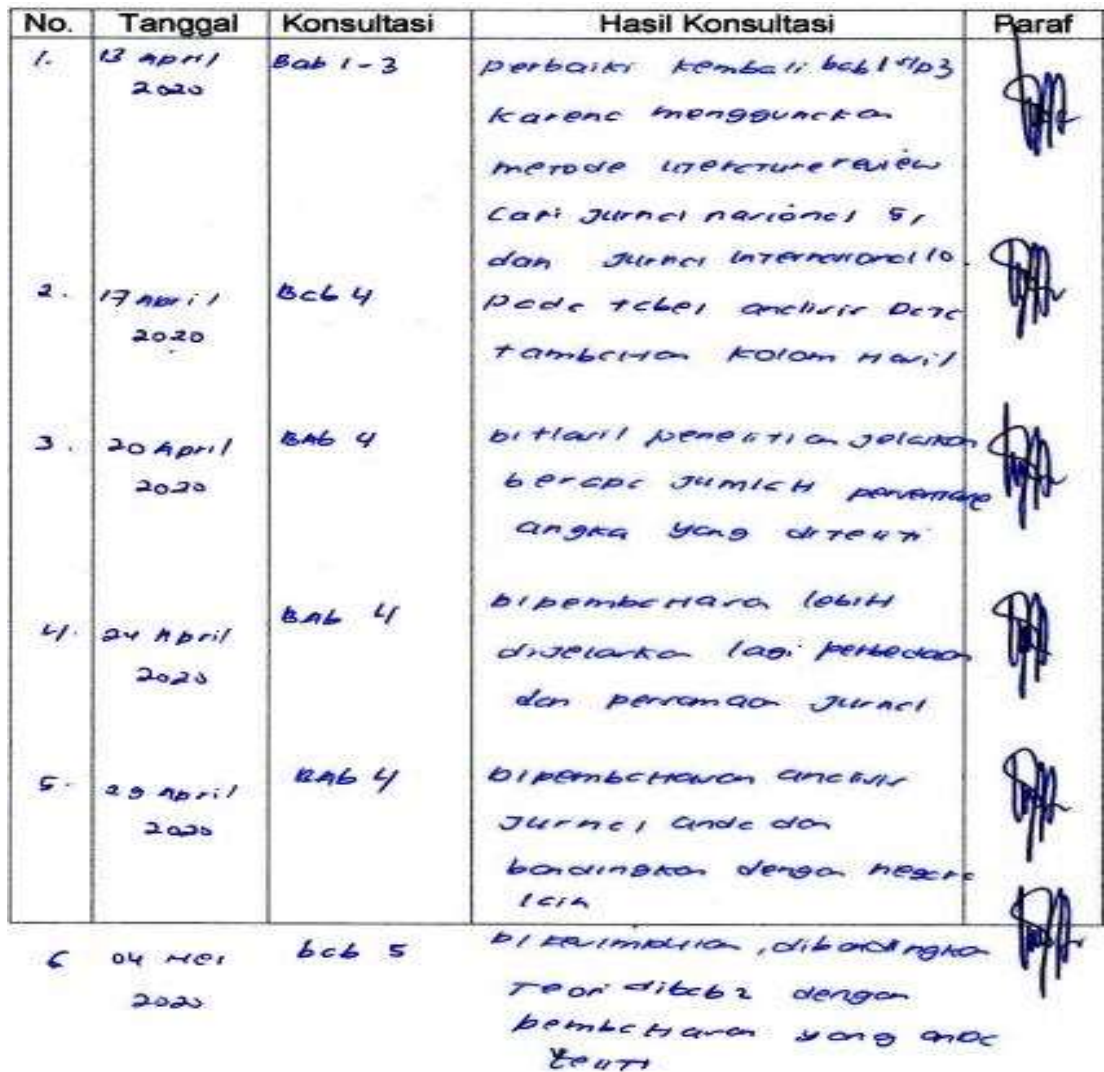 No. Tanggal Konsultasi Hasil Konsultasi Paraf
1. 13 April Bab 1-3 perbaiki kembali bab 1 s/p 3
2020
karena menggunakan
metode literature review
Cari Jurnal nasional 5,
dan Jurnal internasional 10.
2. 17 April Bab 4 Pada tabel analisis Data
2020 tambahkan kolom Hasil
3. 20 April BAb 4 Di Hasil penelitian jelaskan
2020 berapa Jumlah persentase
angka yang diteliti
4. 24 April BAb 4 Di pembahasan lebih
2020 dijelaskan lagi perbedaan
dan persamaan Jurnal
5. 29 April BAb 4 Di pembahasan analisis
2020 Jurnal anda dan
bandingkan dengan negara
lain
6 04 Mei bab 5 Di kesimpulan, dibandingkan
2020 Teori dibab 2 dengan
pembahasan yang anda
teliti